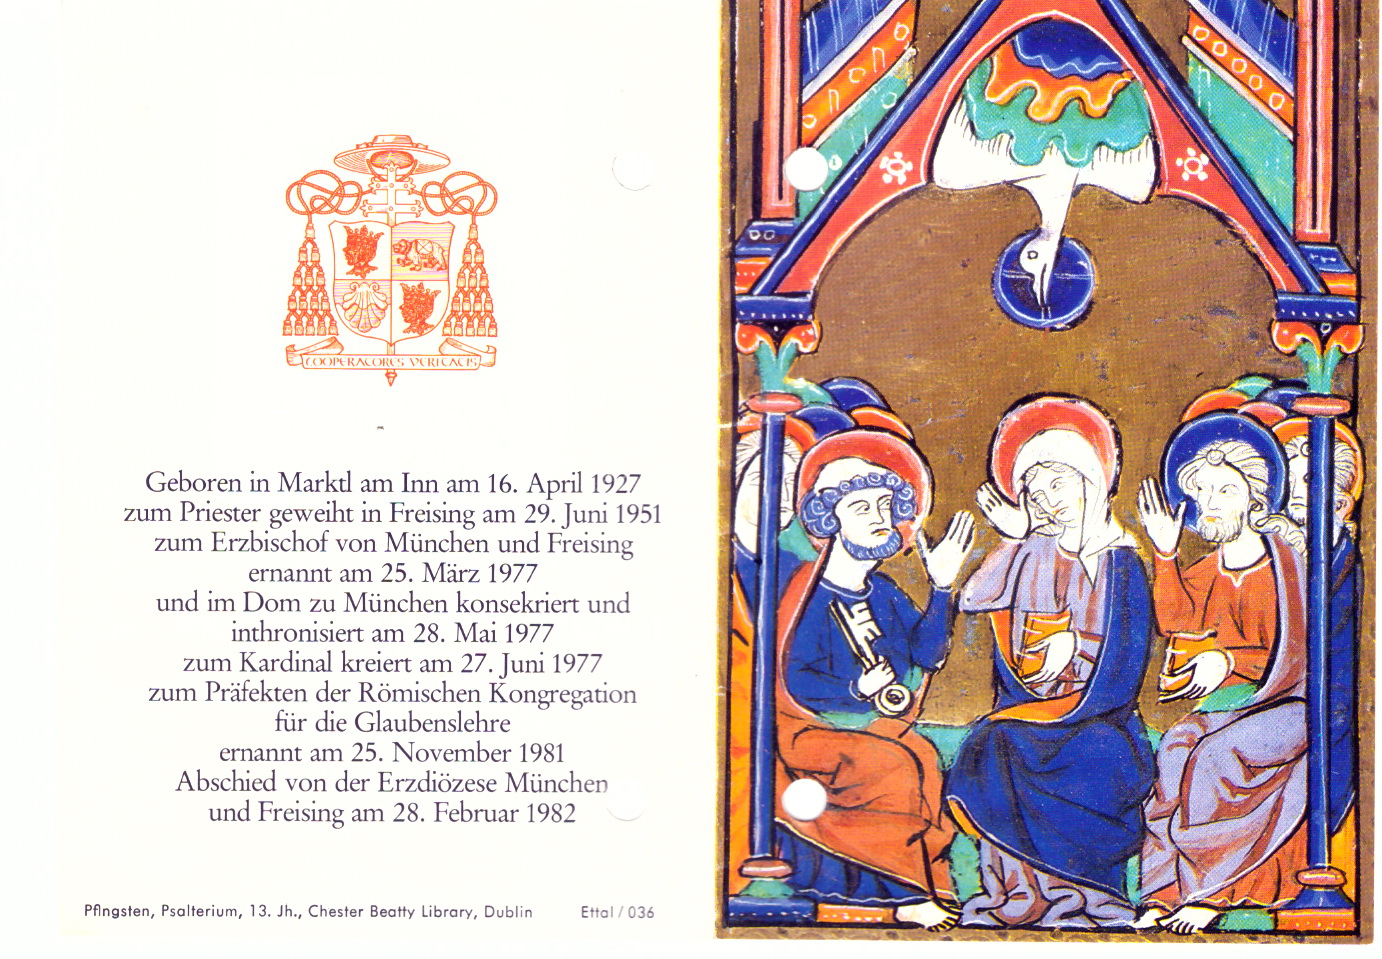 COOPERATORES VERITATIS
Geboren in Marktl am Inn am 16. April 1927
zum Priester geweiht in Freising am 29. Juni 1951
zum Erzbischof von München und Freising
ernannt am 25. März 1977
und im Dom zu München konsekriert und
inthronisiert am 28. Mai 1977
zum Kardinal kreiert am 27. Juni 1977
zum Präfekten der Römischen Kongregation
für die Glaubenslehre
ernannt am 25. November 1981
Abschied von der Erzdiözese München
und Freising am 28. Februar 1982
Pfingsten, Psalterium, 13. Jh., Chester Beatty Library, Dublin Ettal / 036